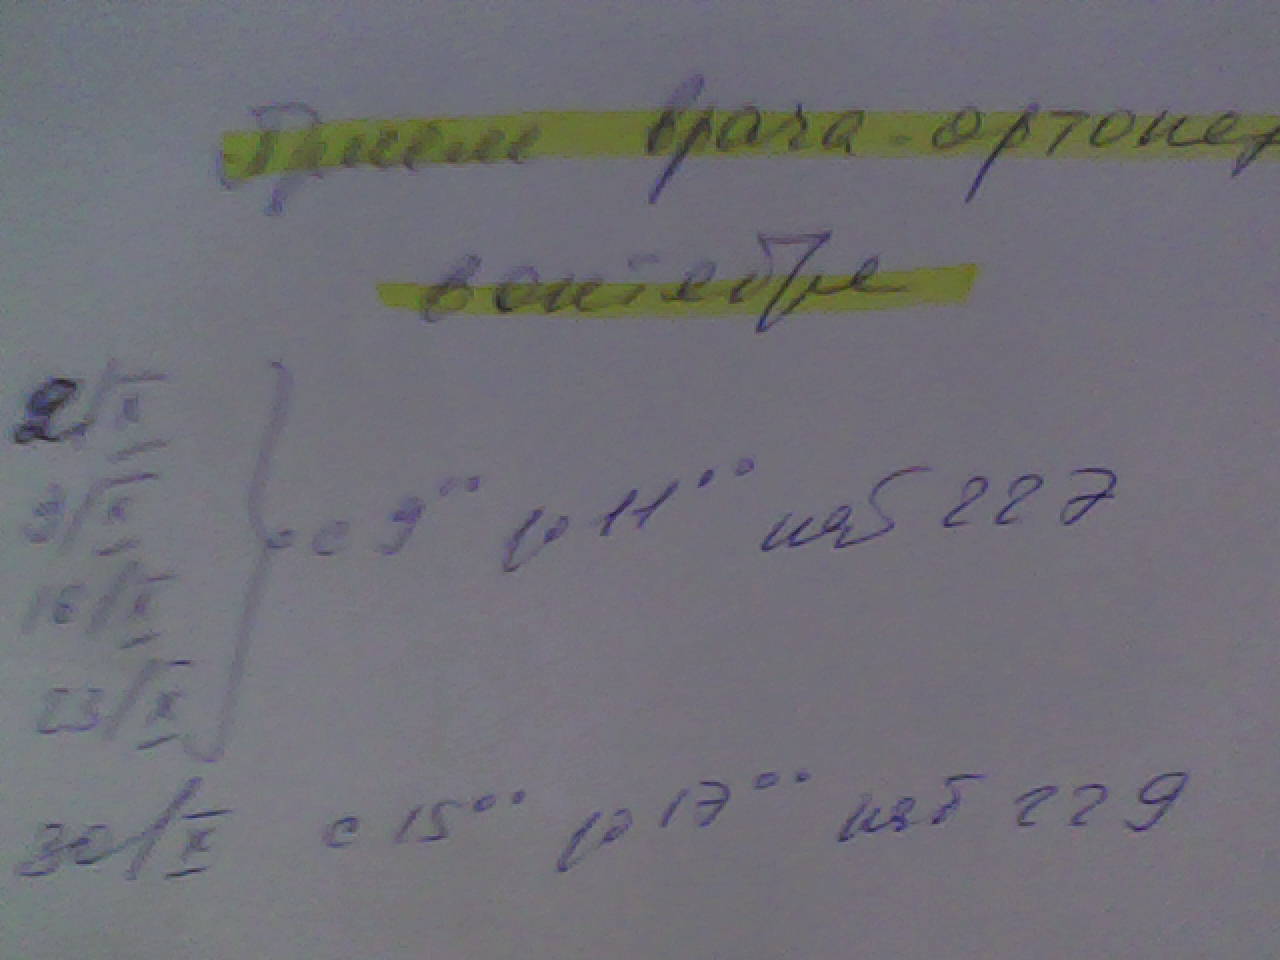 Прием врача-ортопед
в октябре
2/X
9/X
16/X
23/X
с 9⁰⁰ до 11⁰⁰ каб 227
30/X с 15⁰⁰ до 17⁰⁰ каб 229